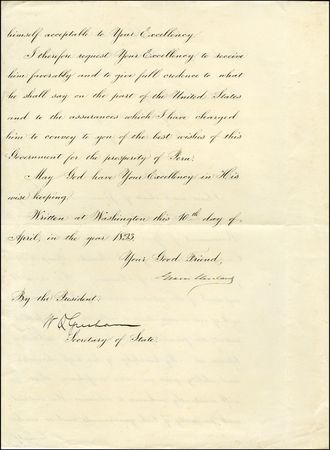 himself acceptable to Your Excellency.
I therefore request Your Excellency to receive
him favorably and to give full credence to what
he shall say on the part of the United States
and to the assurances which I have charged
him to convey to you of the best wishes of this
Government for the prosperity of Peru.
May God have Your Excellency in His
wise keeping.
Written at Washington this 10th day of
April, in the year 1893.
Your Good Friend,
Grover Cleveland
By the President:
W Q Gresham
Secretary of State.